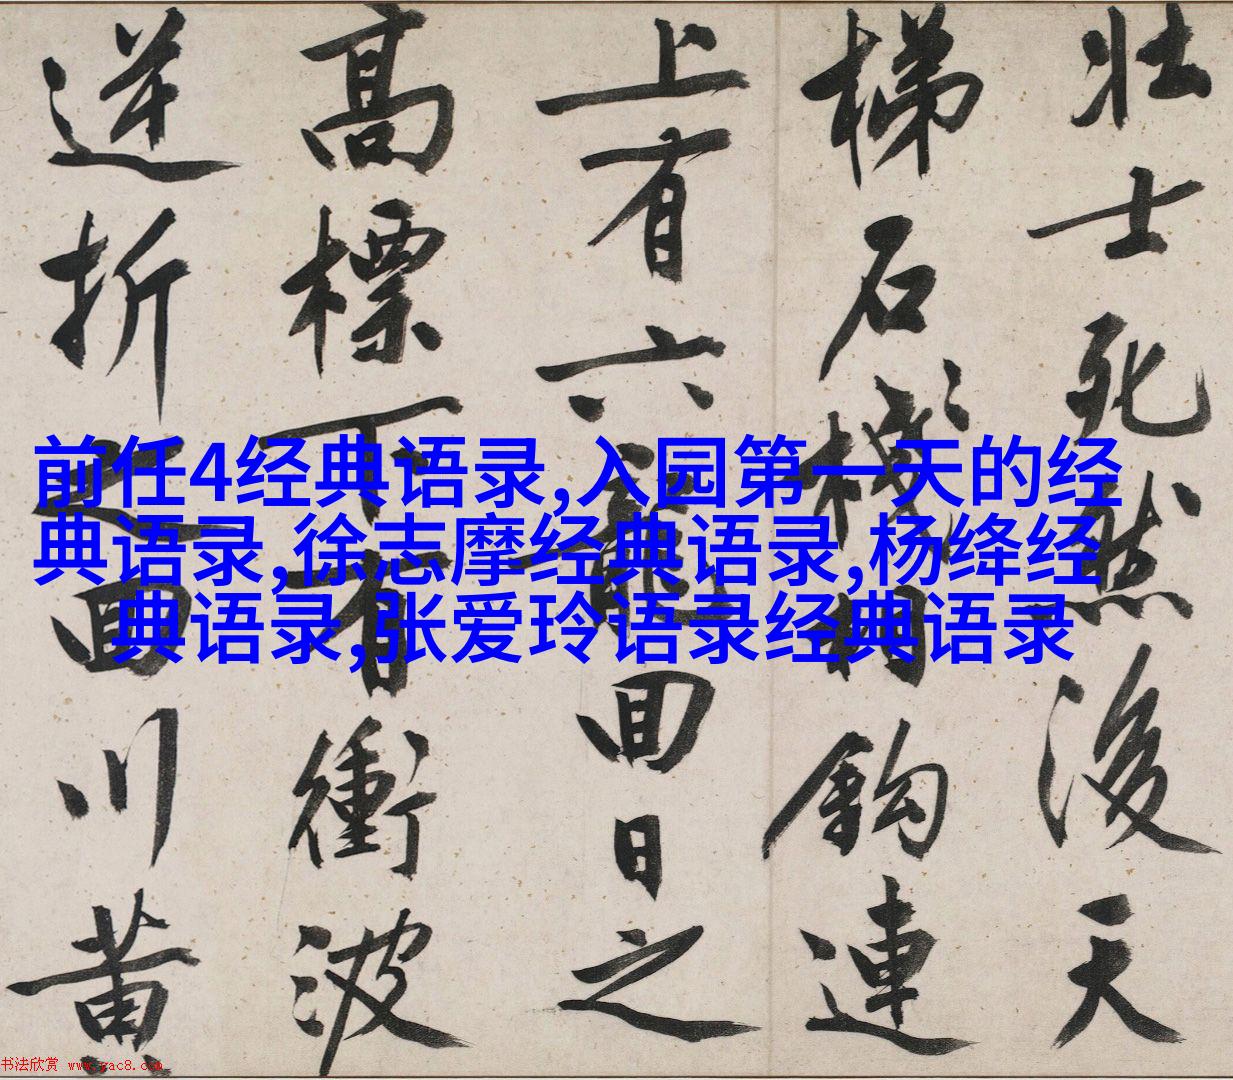 壯士死然後天
梯石棧相鈎連
上有六龍回日之
高標下有衝波
逆折之回川黄
前任4经典语录,入园第一天的经
典语录,徐志摩经典语录,杨绛经
典语录,张爱玲语录经典语录
书法欣赏 www.yac8.com